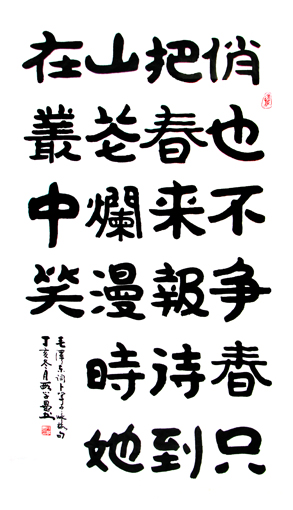 俏也不争春只
把春来報待到
山花爛漫時她
在叢中笑
毛澤东词卜算子咏梅句
丁亥冬月